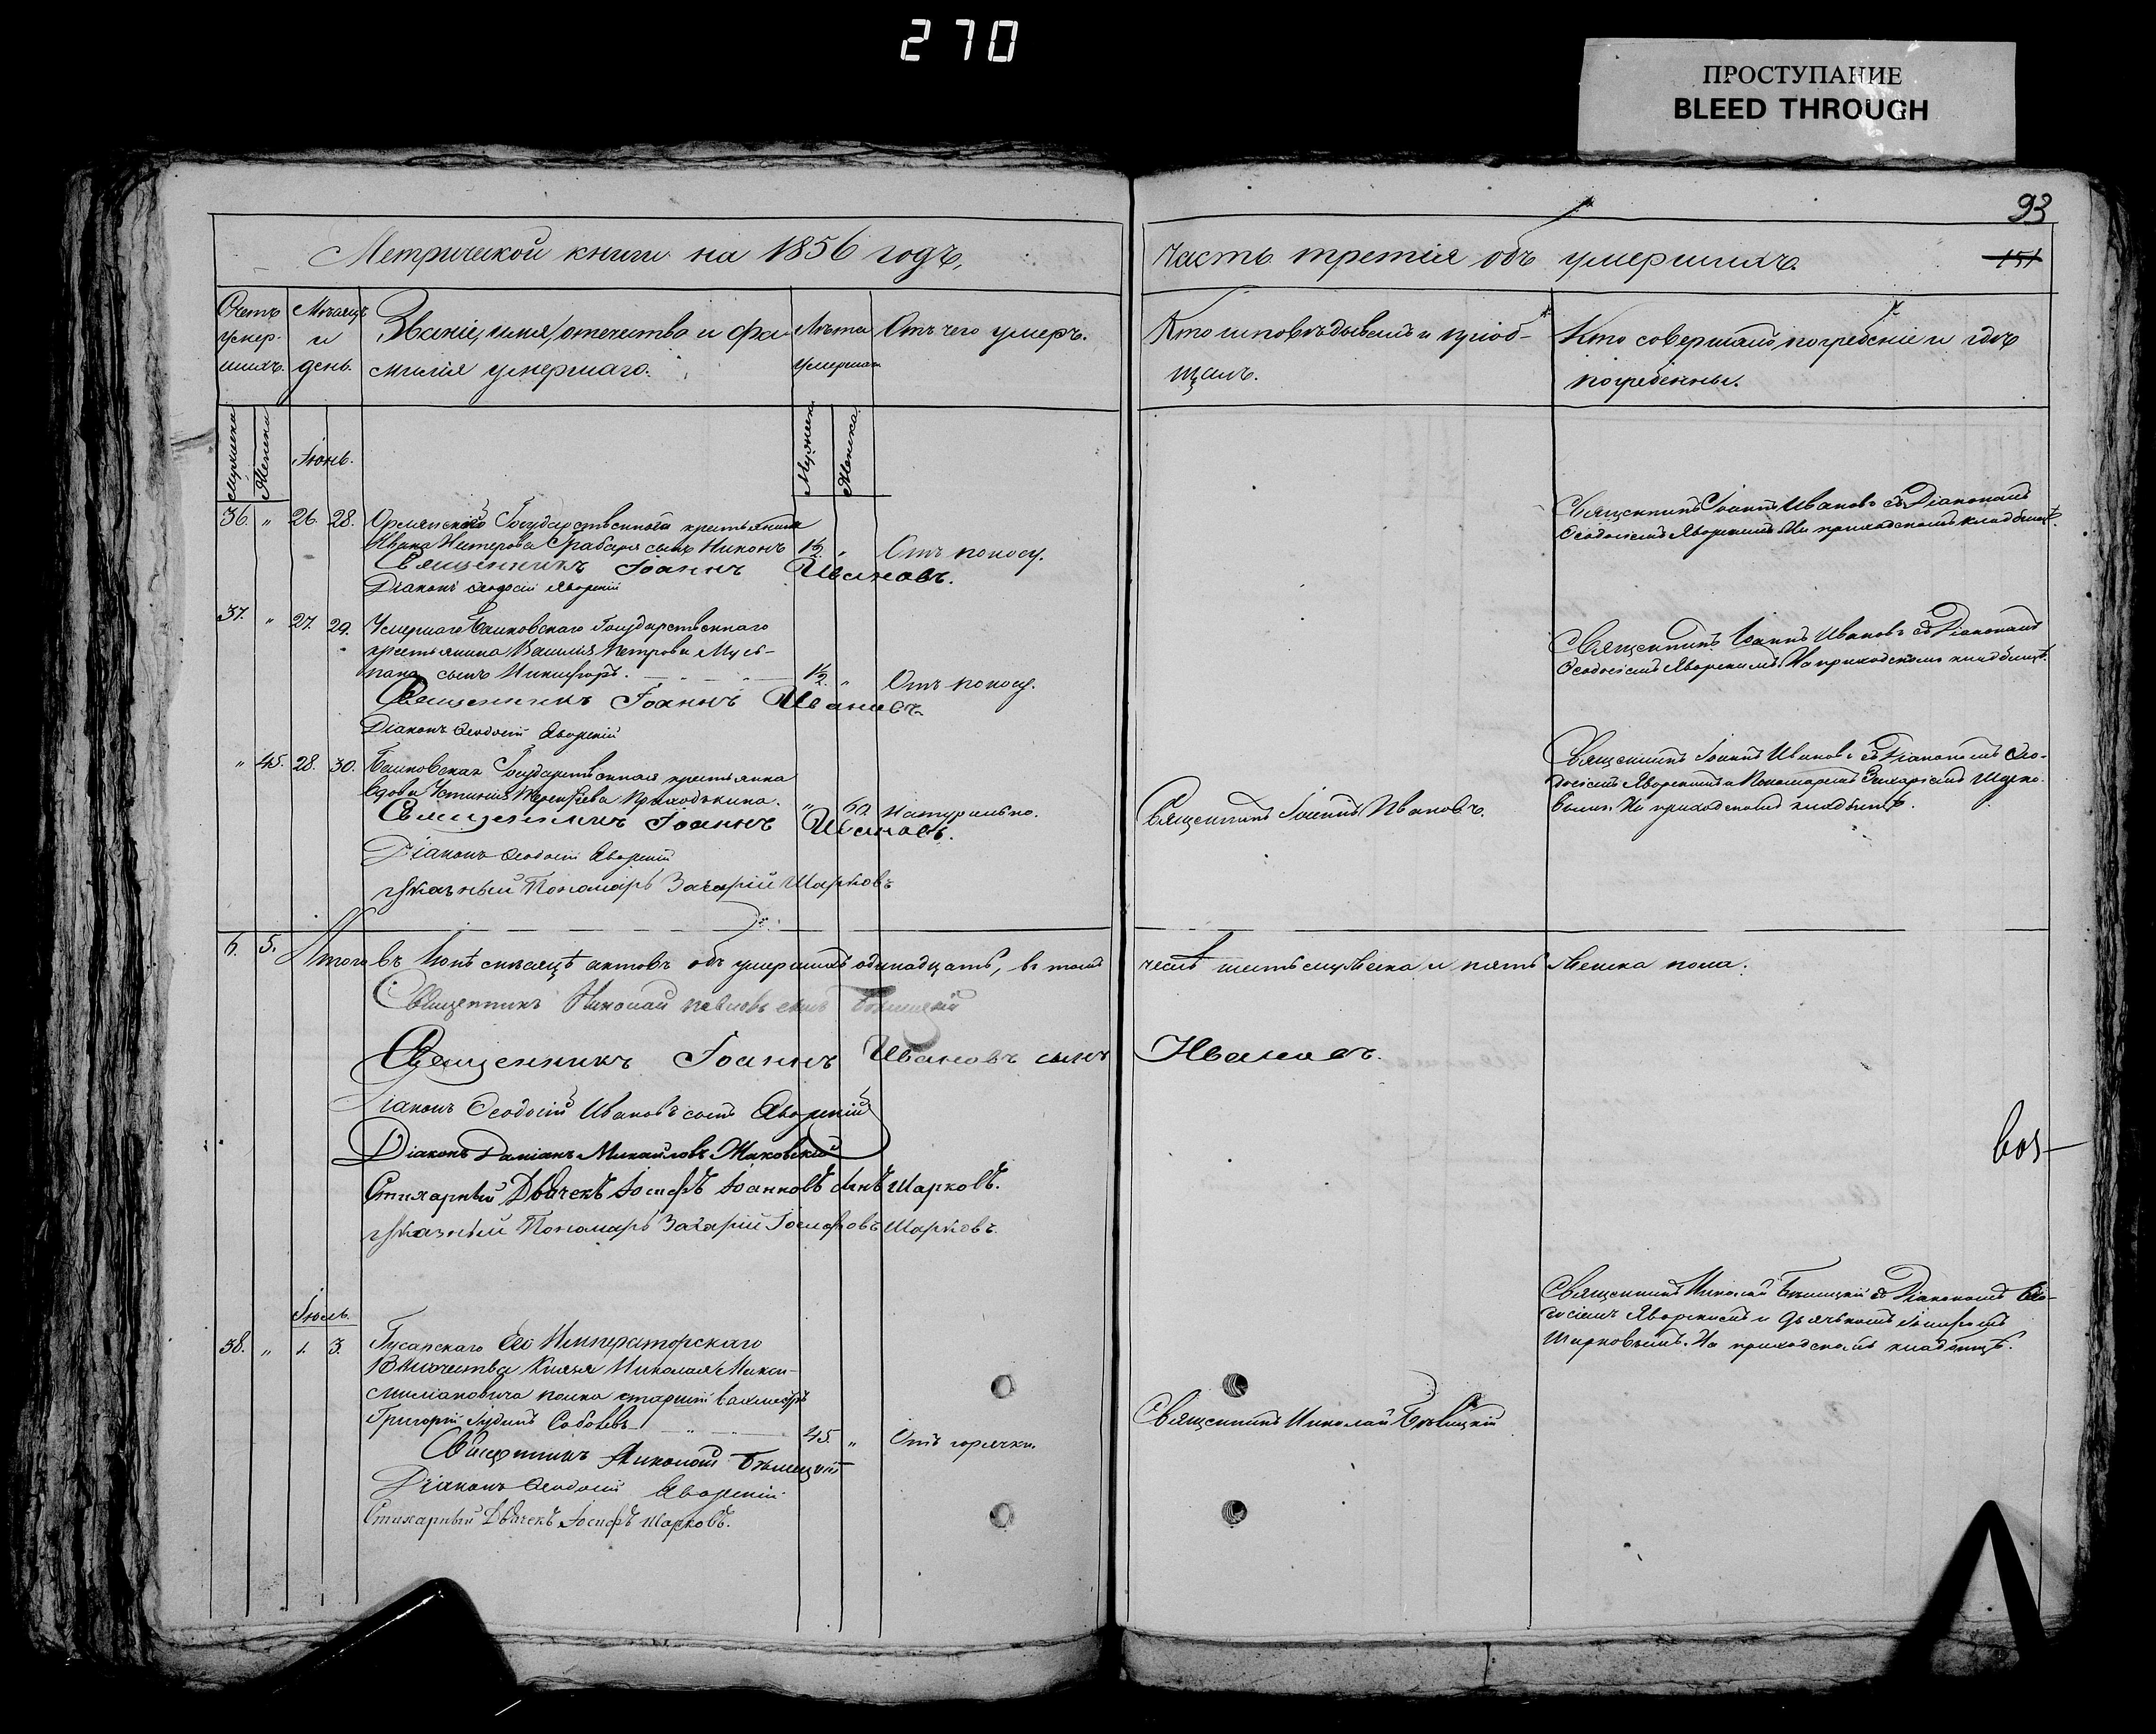 270
ПРОСТУПАНИЕ
BLEED THROUGH
93
Метрической книги на 1856 годъ,
Часть третія объ умершихъ.
151
Счетъ умер- шихъ.
Мѣсяцъ и день.
Званіе, имя, отечество и фа-
милія умершаго.
Лѣта умершаго
Отъ чего умеръ.
Кто исповѣдывалъ и пріоб-
щалъ.
Кто совершалъ погребеніе и гдѣ
погребены.
Мужеска
Женска
Іюнь.
Мужеска
Женска
36. " 26. 28. Государственнаго крестьянина
Ивана Нестерова сынъ Никонъ 1½ " Отъ поносу.
Священникъ Іоаннъ Ивановъ.
Діаконъ Ѳеодосій Яворскій
Священникъ Іоаннъ Ивановъ съ Діакономъ
Ѳеодосіемъ Яворскимъ На приходскомъ кладбищѣ.
37. " 27. 29. Умершаго Государственнаго
крестьянина Василія Петрова
сынъ Никифоръ. 1½ " Отъ поносу.
Священникъ Іоаннъ Ивановъ
Діаконъ Ѳеодосій Яворскій
Священникъ Іоаннъ Ивановъ съ Діакономъ
Ѳеодосіемъ Яворскимъ На приходскомъ кладбищѣ.
" 45. 28. 30. Государственная крестьянка
вдова Устинія Приходькина. " 60. Натурально.
Священникъ Іоаннъ Ивановъ.
Діаконъ Ѳеодосій Яворскій
Указный Пономарь Захарій Шарковъ
Священникъ Іоаннъ Ивановъ.
Священникъ Іоаннъ Ивановъ съ Діакономъ Ѳео-
досіемъ Яворскимъ и Пономаремъ Захаріемъ Шарко-
вымъ. На приходскомъ кладбищѣ.
6. 5. Итого въ Іюнѣ мѣсяцѣ актовъ объ умершихъ одинадцать, въ томъ
числѣ шесть мужеска и пять женска пола.
Священникъ Николай Павловъ сынъ Бѣлицкій
Священникъ Іоаннъ Ивановъ сынъ Ивановъ.
Діаконъ Ѳеодосій Ивановъ сынъ Яворскій
Діаконъ Даміанъ Михайловъ Маковскій
Стихарный Дьячекъ Іосифъ Іоанновъ сынъ Шарковъ.
Указный Пономарь Захарій Іосифовъ Шарковъ.
Іюль.
38. " 1. 3. Гусарскаго Его Императорскаго
Высочества Князя Николая Макси-
миліановича полка старшій вахмистръ
Григорій Соболевъ 45. " Отъ горячки.
Священникъ Николай Бѣлицкій
Діаконъ Ѳеодосій Яворскій
Стихарный Дьячекъ Іосифъ Шарковъ.
Священникъ Николай Бѣлицкій
Священникъ Николай Бѣлицкій съ Діакономъ Ѳео-
досіемъ Яворскимъ и дьячькомъ Іосифомъ
Шарковымъ. На приходскомъ кладбищѣ.